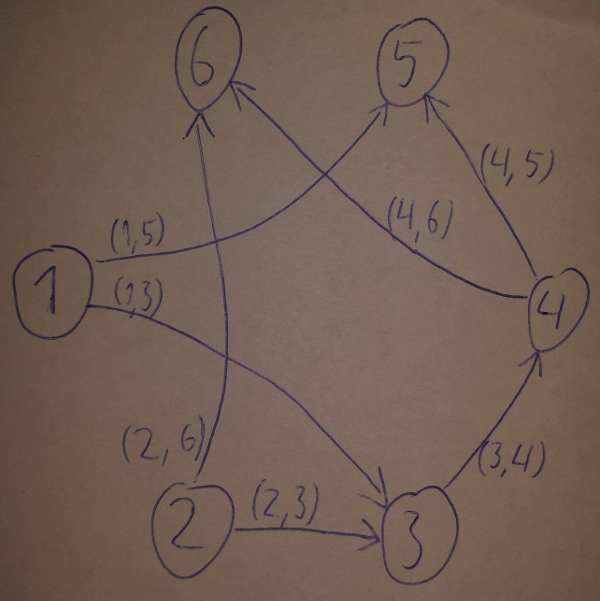 6 5
(4,5)
(1,5) (4,6)
1 (1,3)
4
(2,6)
(3,4)
2 (2,3) 3